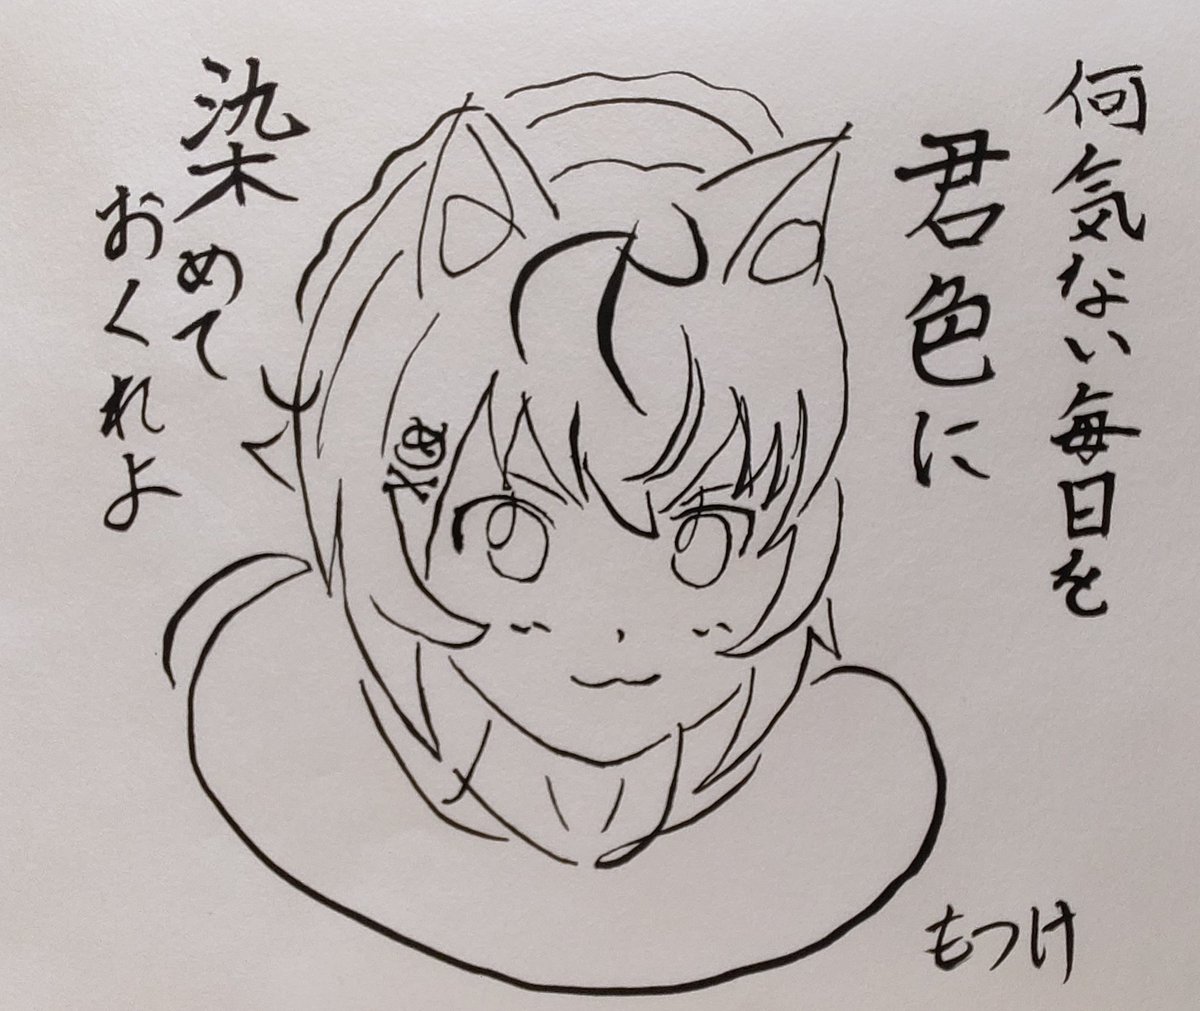 何気ない毎日を
君色に
染めて
おくれよ
もつけ